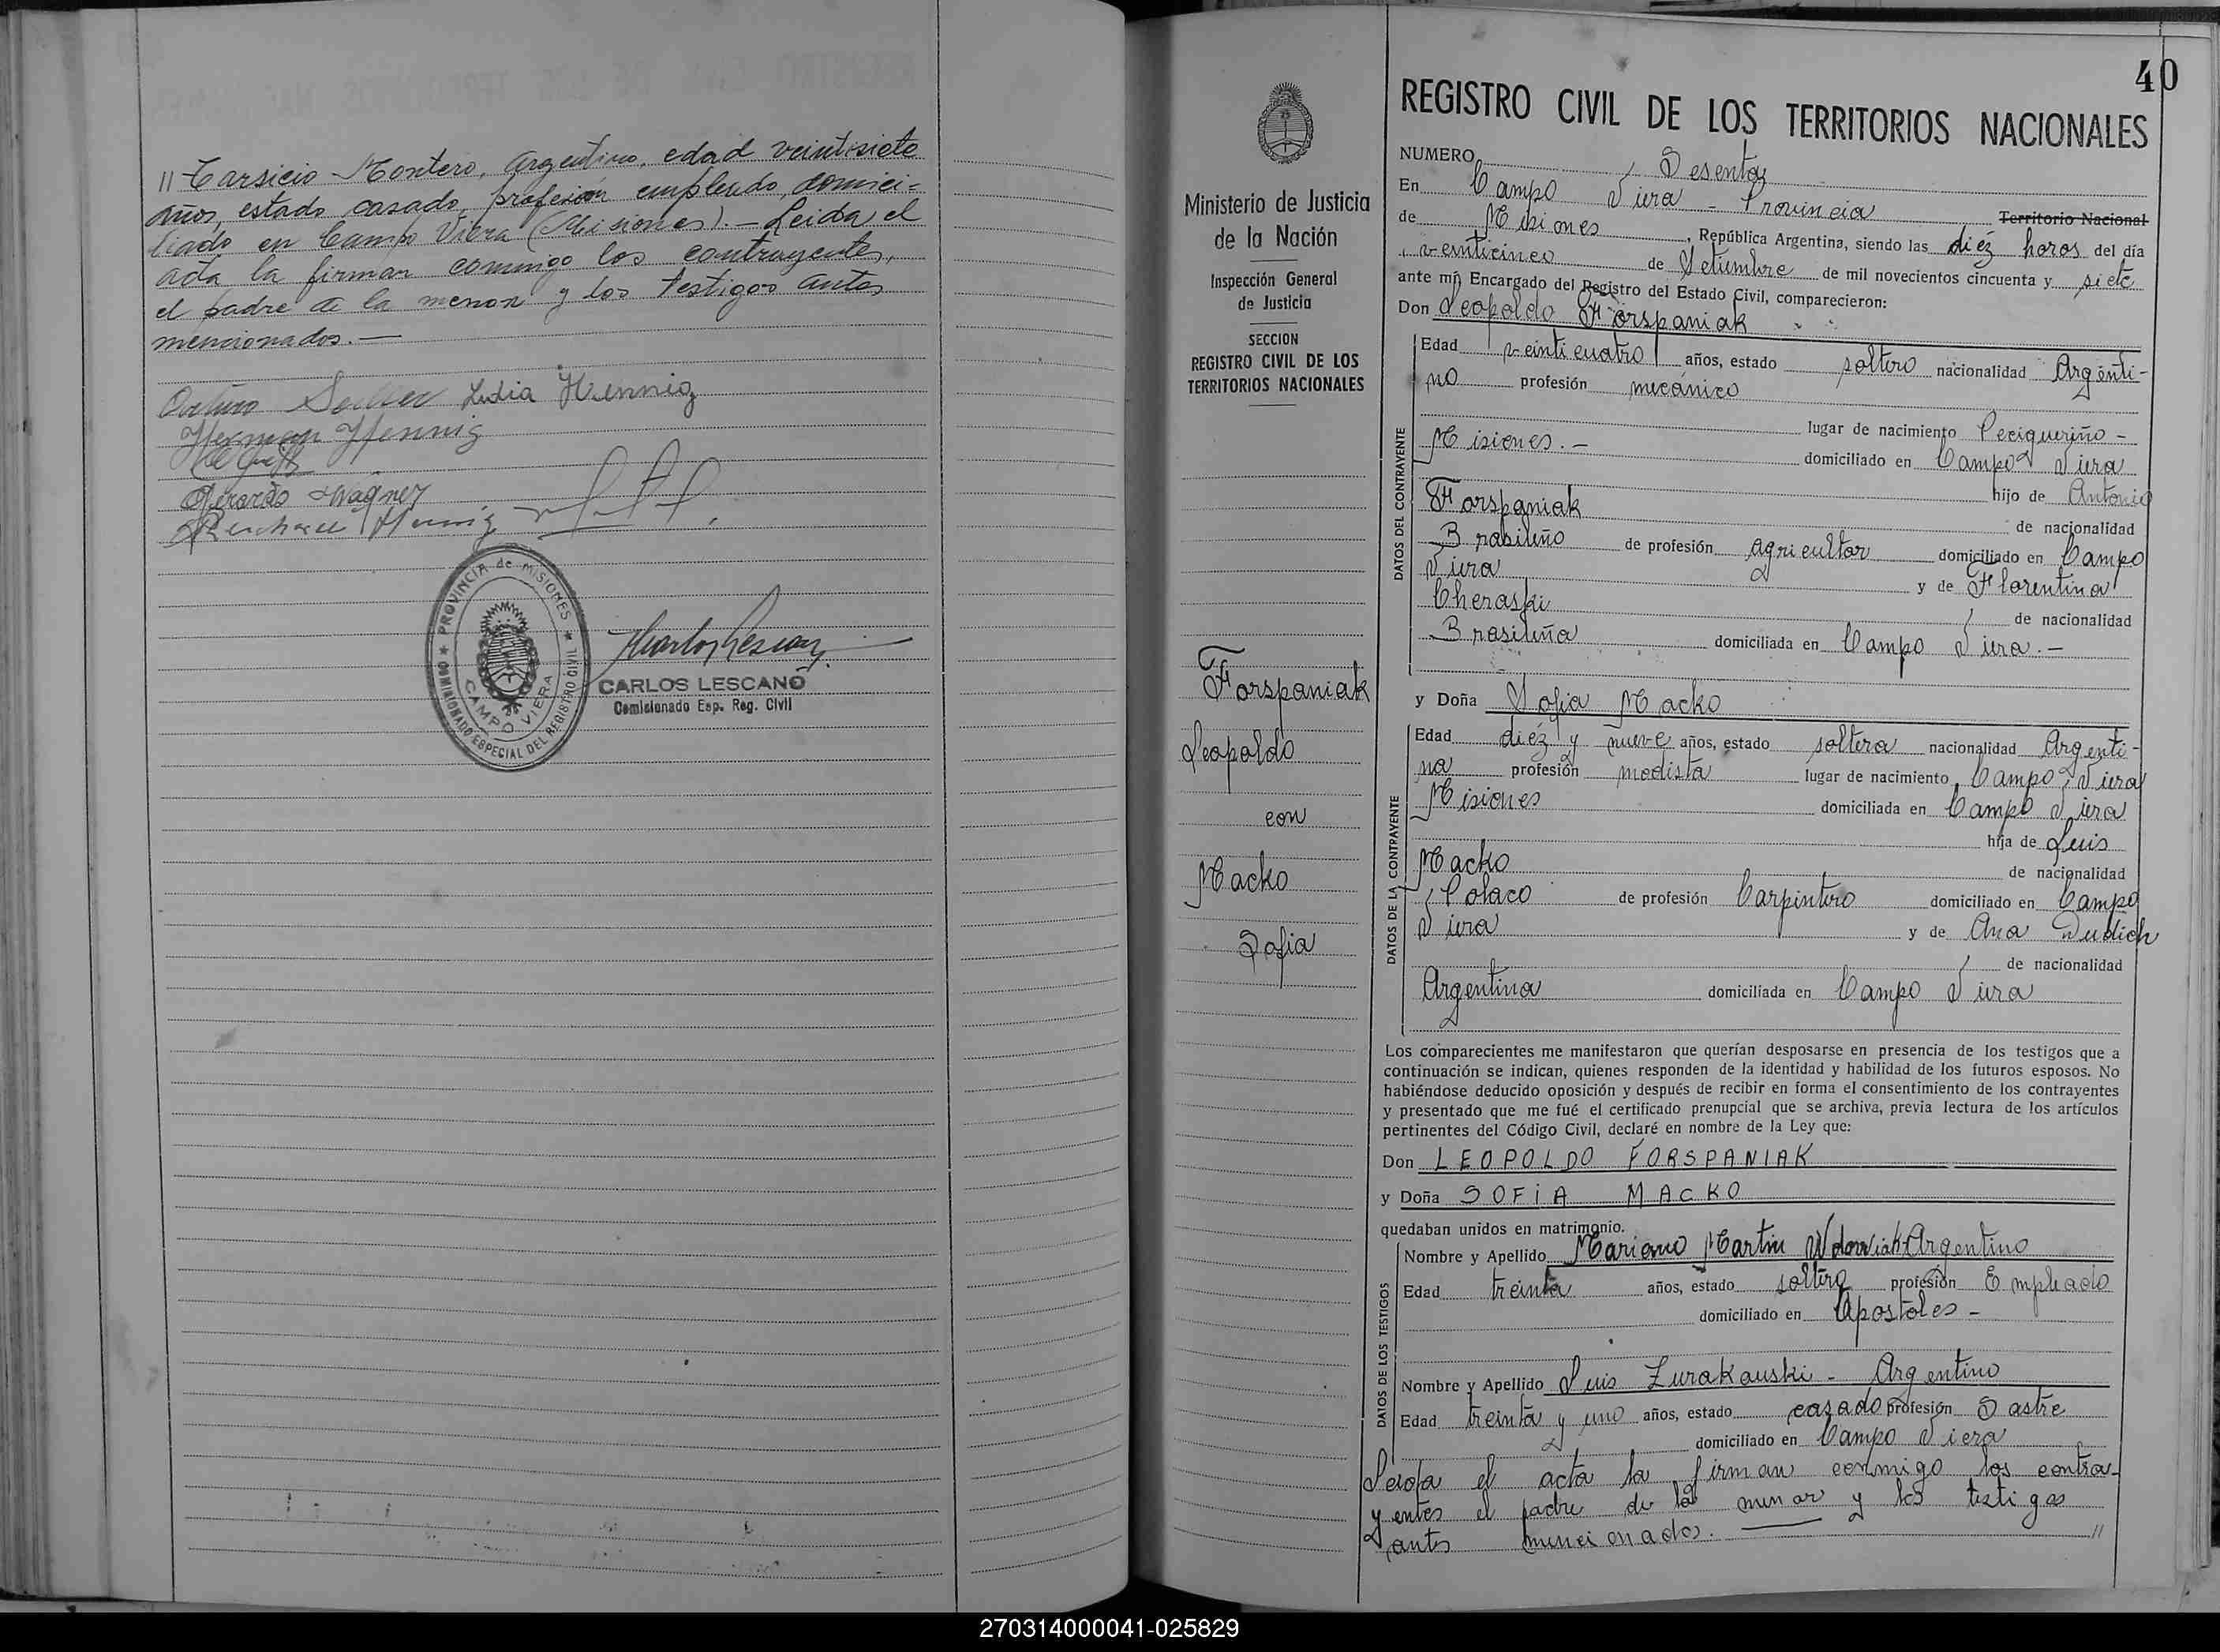 // Tarsicio Montero, Argentino, edad veintisiete
años, estado casado, profesión empleado, domici=
liado en Campo Viera (Misiones).- Leida el
acta la firman conmigo los contrayentes,
el padre de la menor y los testigos antes
mencionados.—
Arturo Lidia Hennig
Herman Hennig
Gerardo Wagner
Hennig
PROVINCIA de MISIONES
COMISIONADO ESPECIAL DEL REGISTRO CIVIL
CAMPO VIERA
CARLOS LESCANO
Comisionado Esp. Reg. Civil
Ministerio de Justicia
de la Nación
Inspección General
de Justicia
SECCION
REGISTRO CIVIL DE LOS
TERRITORIOS NACIONALES
Forspaniak
Leopoldo
con
Macko
Sofia
40
REGISTRO CIVIL DE LOS TERRITORIOS NACIONALES
NUMERO Sesenta
En Campo Viera - Provincia Territorio Nacional
de Misiones, República Argentina, siendo las diéz horas del día
veinticinco de Setiembre de mil novecientos cincuenta y siete
ante mí, Encargado del Registro del Estado Civil, comparecieron:
Don Leopoldo Forspaniak
DATOS DEL CONTRAYENTE
Edad veinticuatro años, estado soltero nacionalidad Argenti-
no profesión mecánico
lugar de nacimiento Periqueriño -
Misiones.- domiciliado en Campo Viera
hijo de Antonio
Forspaniak de nacionalidad
Brasileño de profesión agricultor domiciliado en Campo
Viera y de Florentina
Cheraski de nacionalidad
Brasileña domiciliada en Campo Viera.-
y Doña Sofia Macko
DATOS DE LA CONTRAYENTE
Edad diéz y nueve años, estado soltera nacionalidad Argenti-
na profesión modista lugar de nacimiento Campo Viera
Misiones domiciliada en Campo Viera
hija de Luis
Macko de nacionalidad
Polaco de profesión Carpintero domiciliado en Campo
Viera y de Ana Dudich
de nacionalidad
Argentina domiciliada en Campo Viera
Los comparecientes me manifestaron que querían desposarse en presencia de los testigos que a
continuación se indican, quienes responden de la identidad y habilidad de los futuros esposos. No
habiéndose deducido oposición y después de recibir en forma el consentimiento de los contrayentes
y presentado que me fué el certificado prenupcial que se archiva, previa lectura de los artículos
pertinentes del Código Civil, declaré en nombre de la Ley que:
Don LEOPOLDO FORSPANIAK
y Doña SOFIA MACKO
quedaban unidos en matrimonio.
DATOS DE LOS TESTIGOS
Nombre y Apellido Mariano Martin Argentino
Edad treinta años, estado soltero profesión Empleado
domiciliado en Apostoles -
Nombre y Apellido Luis Zurakauski - Argentino
Edad treinta y uno años, estado casado profesión Sastre
domiciliado en Campo Viera
Leida el acta la firman conmigo los contra-
yentes el padre de la menor y los testigos
antes mencionados. —— //
270314000041-025829